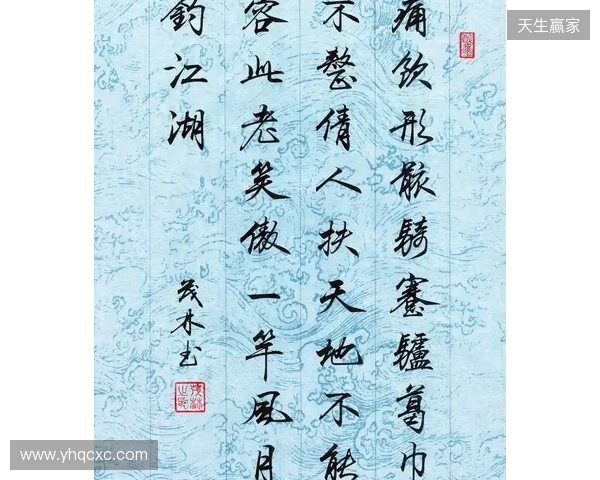 痛飲形骸騎蹇驢葛巾
不整倩人扶天地不能
容此老笑傲一竿風月
釣江湖
茂林书
天生赢家
www.yhqcxc.com